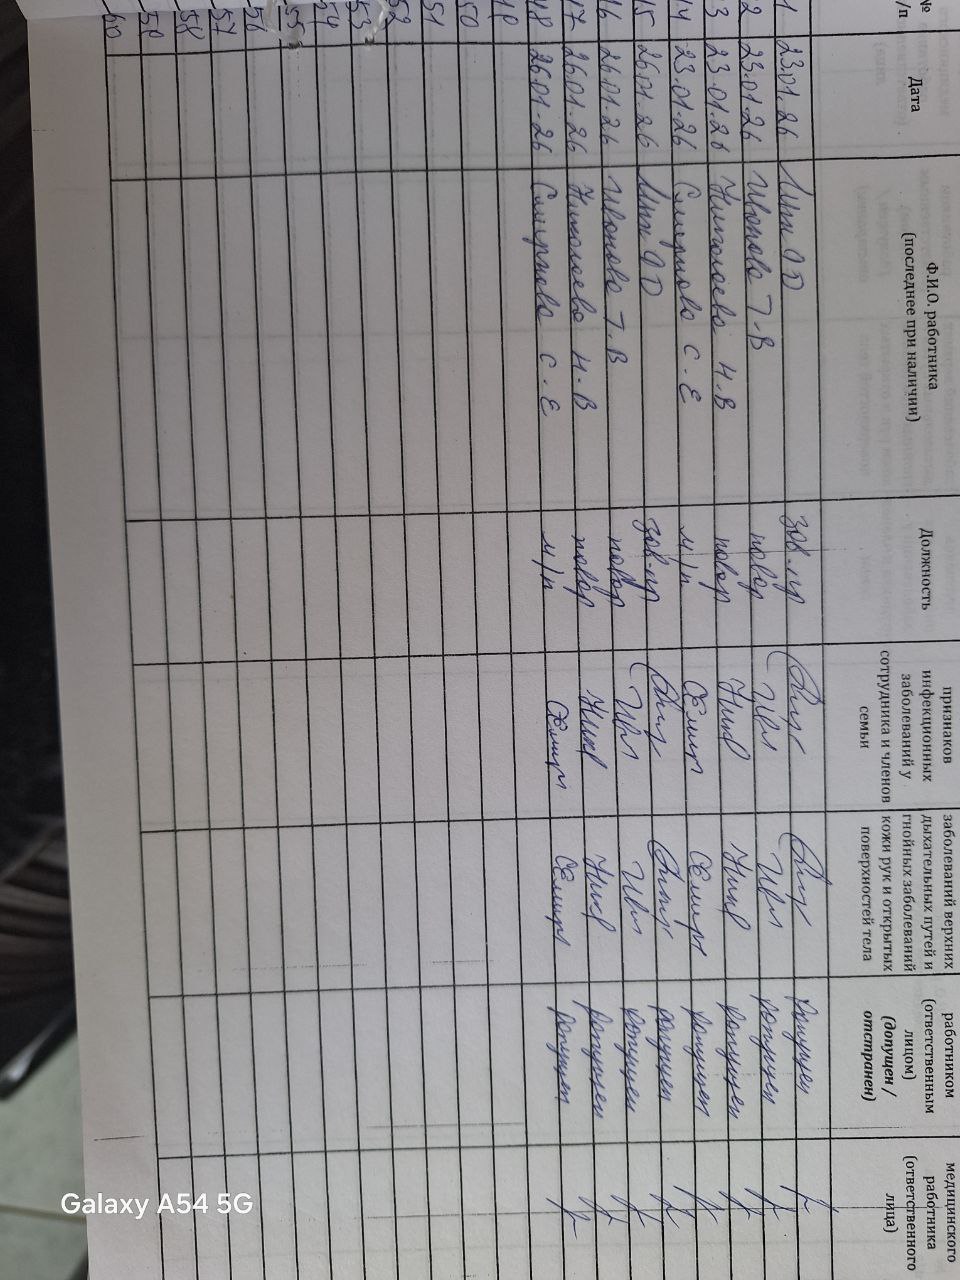 № п/п Дата Ф.И.О. работника (последнее при наличии) Должность признаков инфекционных заболеваний у сотрудника и членов семьи заболеваний верхних дыхательных путей и гнойных заболеваний кожи рук и открытых поверхностей тела работником (ответственным лицом) (допущен / отстранен) медицинского работника (ответственного лица)
1 23.01.26 зав.пр допущен
2 23.01.26 Иванова Т.В повар Ива Ива допущен
3 23.01.26 Николаева Н.В повар Ник Ник допущен
14 23.01.26 Смирнова С.Е м/п Смирн Смирн допущен
15 26.01.26 зав.пр допущен
16 26.01.26 Иванова Т.В повар Ива Ива допущен
17 26.01.26 Николаева Н.В повар Ник Ник допущен
48 26.01.26 Смирнова С.Е м/п Смирн Смирн допущен
49
50
51
52
53
54
55
56
57
58
59
60
Galaxy A54 5G